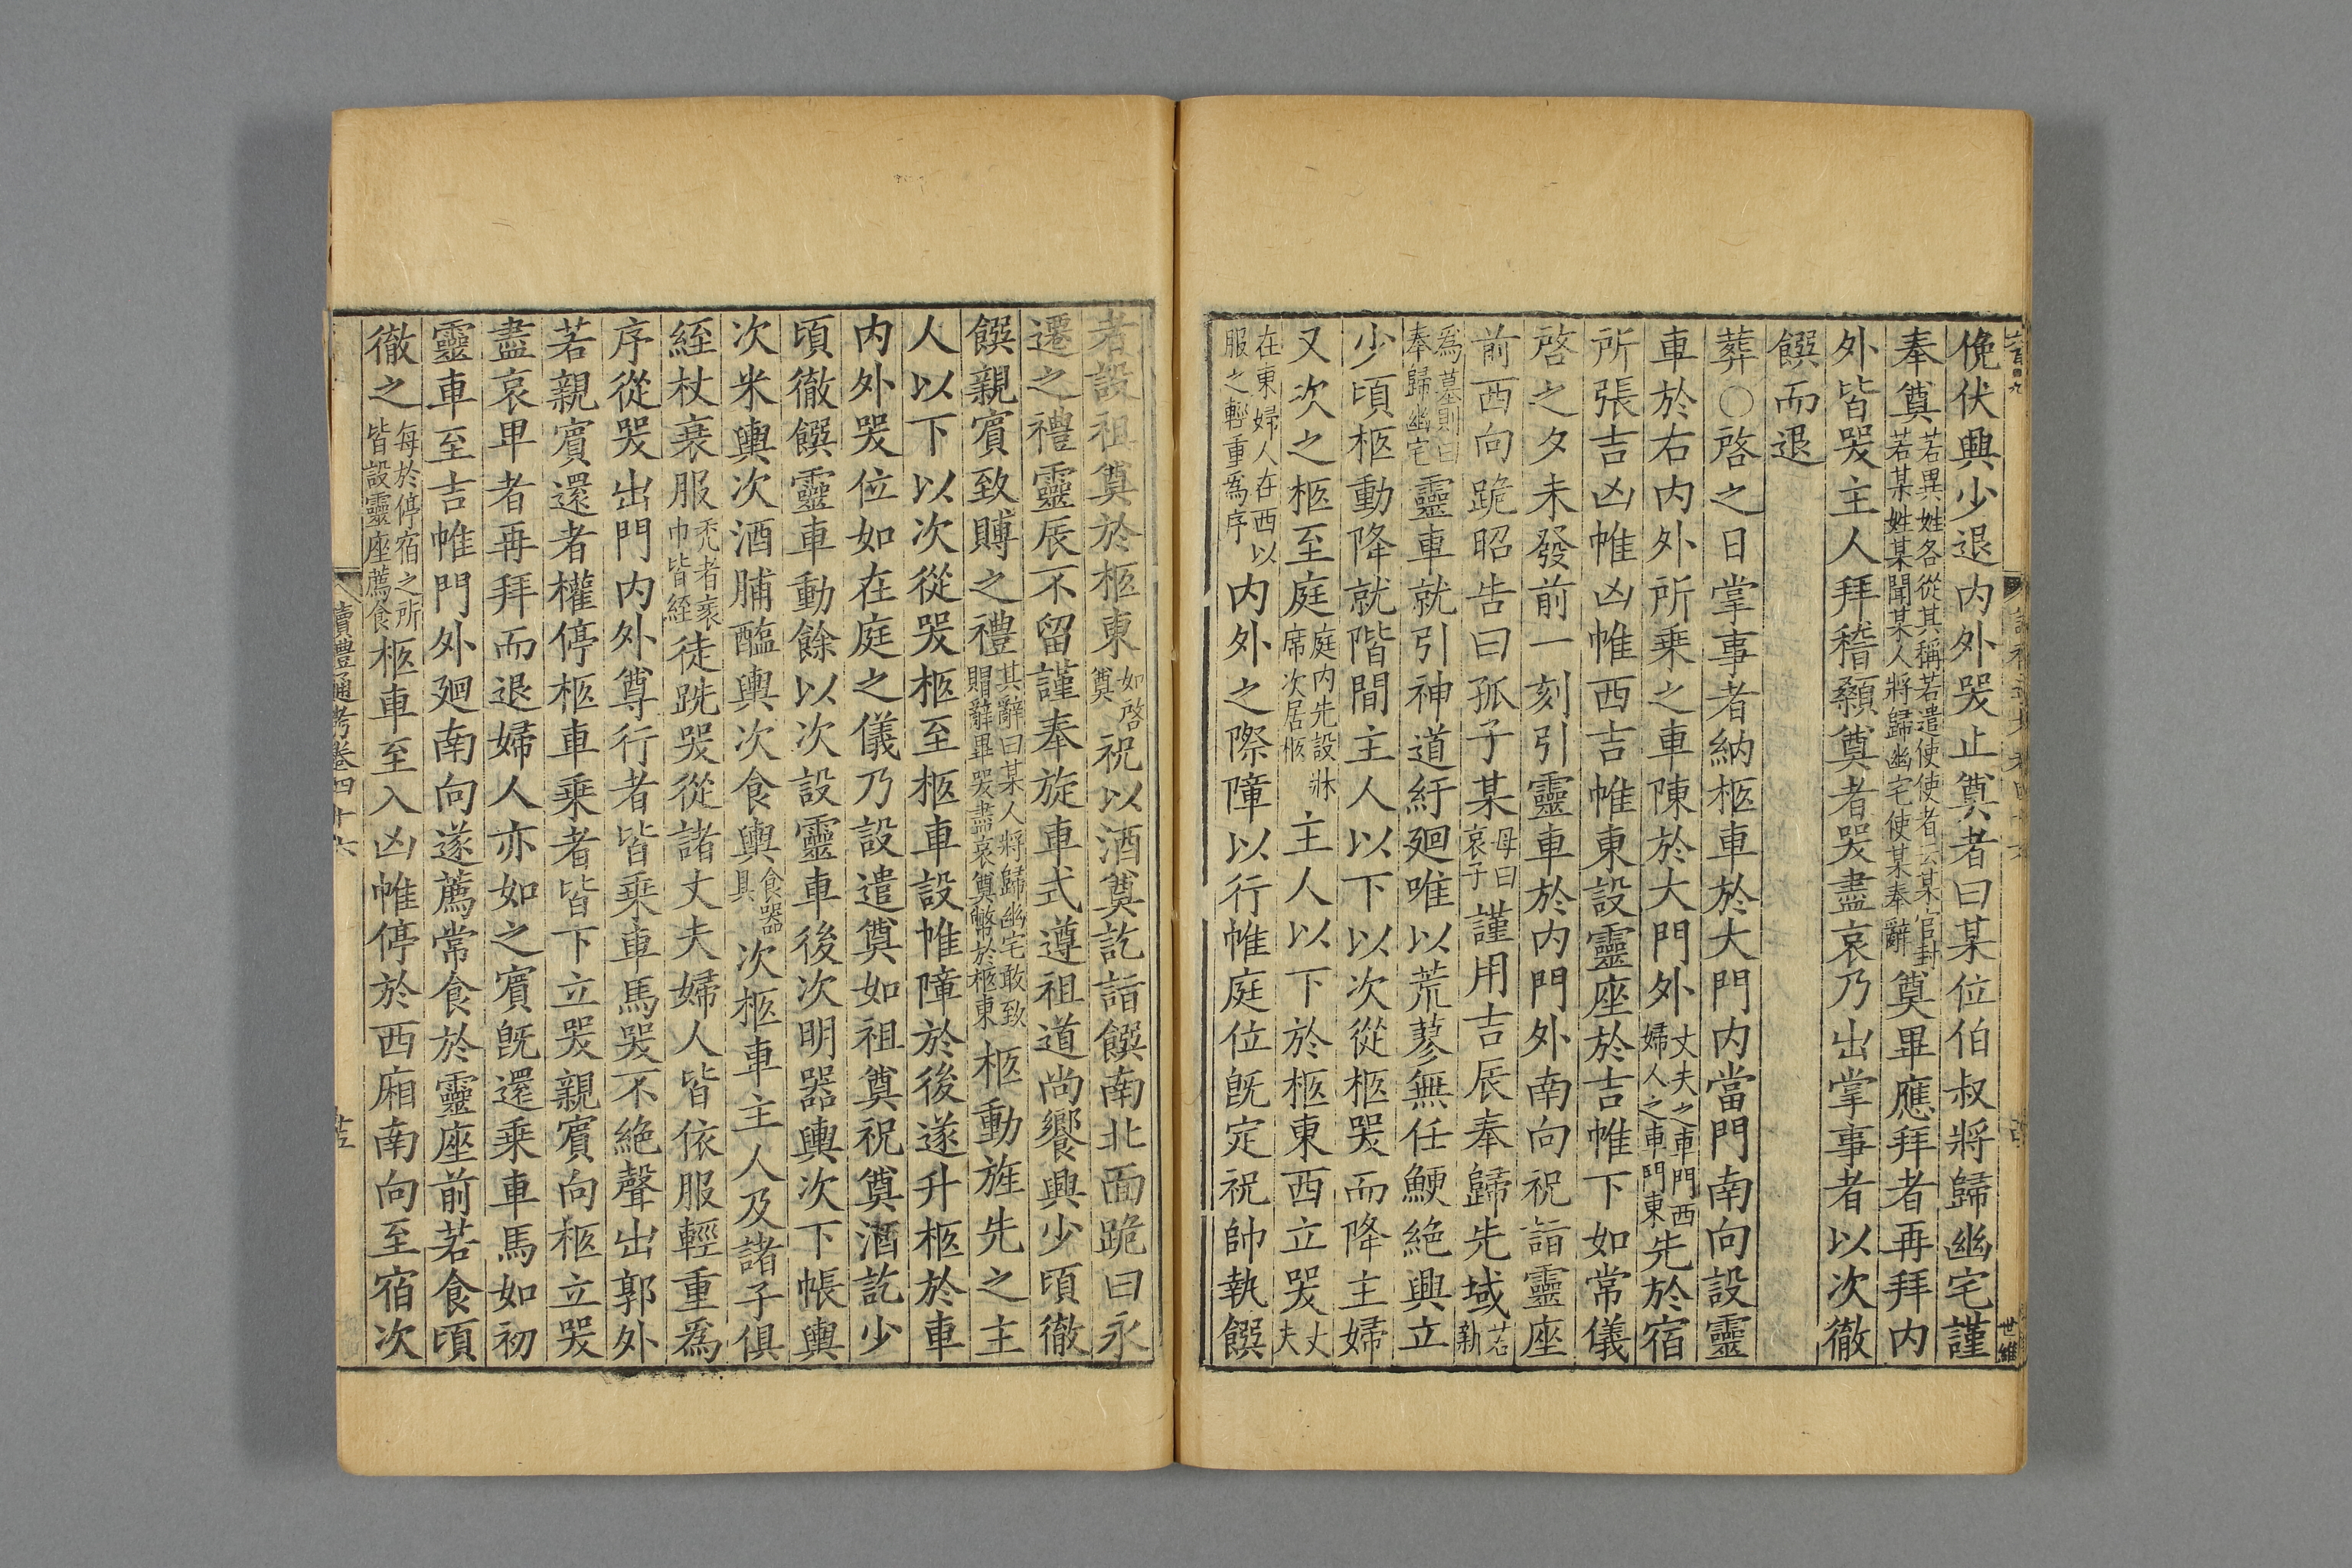 俛伏興少退内外哭止奠者曰某位伯叔將歸幽宅謹
奉奠若異姓各從其稱若遣使使者云某官封若某姓某聞某人將歸幽宅使某奉辭奠畢應拜者再拜内
外皆哭主人拜稽顙奠者哭盡哀乃出掌事者以次徹
饌而退
葬○啓之日掌事者納柩車於大門内當門南向設靈
車於右内外所乗之車陳於大門外丈夫之車門西婦人之車門東先於宿
所張吉凶帷凶帷西吉帷東設靈座於吉帷下如常儀
啓之夕未發前一刻引靈車於内門外南向祝詣靈座
前西向跪昭告曰孤子某母曰哀子謹用吉辰奉歸先域若新
爲墓則曰奉歸幽宅靈車就引神道紆廻唯以荒蓼無任鯁絶興立
少頃柩動降就階間主人以下以次從柩哭而降主婦
又次之柩至庭庭内先設牀席次居柩主人以下於柩東西立哭丈夫
在東婦人在西以服之輕重為序内外之際障以行帷庭位旣定祝帥執饌
者設祖奠於柩東如啓奠祝以酒奠訖詣饌南北面跪曰永
遷之禮靈辰不留謹奉旋車式遵祖道尚饗興少頃徹
饌親賓致賻之禮其辭曰某人將歸幽宅敢致賵辭畢哭盡哀奠幣於柩東柩動旌先之主
人以下以次從哭柩至柩車設帷障於後遂升柩於車
内外哭位如在庭之儀乃設遣奠如祖奠祝奠酒訖少
頃徹饌靈車動餘以次設靈車後次明器輿次下帳輿
次米輿次酒脯醢輿次食輿食器具次柩車主人及諸子俱
絰杖衰服禿者裹巾皆絰徒跣哭從諸丈夫婦人皆依服輕重爲
序從哭出門内外尊行者皆乗車馬哭不絶聲出郭外
若親賓還者權停柩車乗者皆下立哭親賓向柩立哭
盡哀卑者再拜而退婦人亦如之賓旣還乗車馬如初
靈車至吉帷門外廻南向遂薦常食於靈座前若食頃
徹之每於停宿之所皆設靈座薦食柩車至入凶帷停於西廂南向至宿次
讀禮通考卷四十六
世維